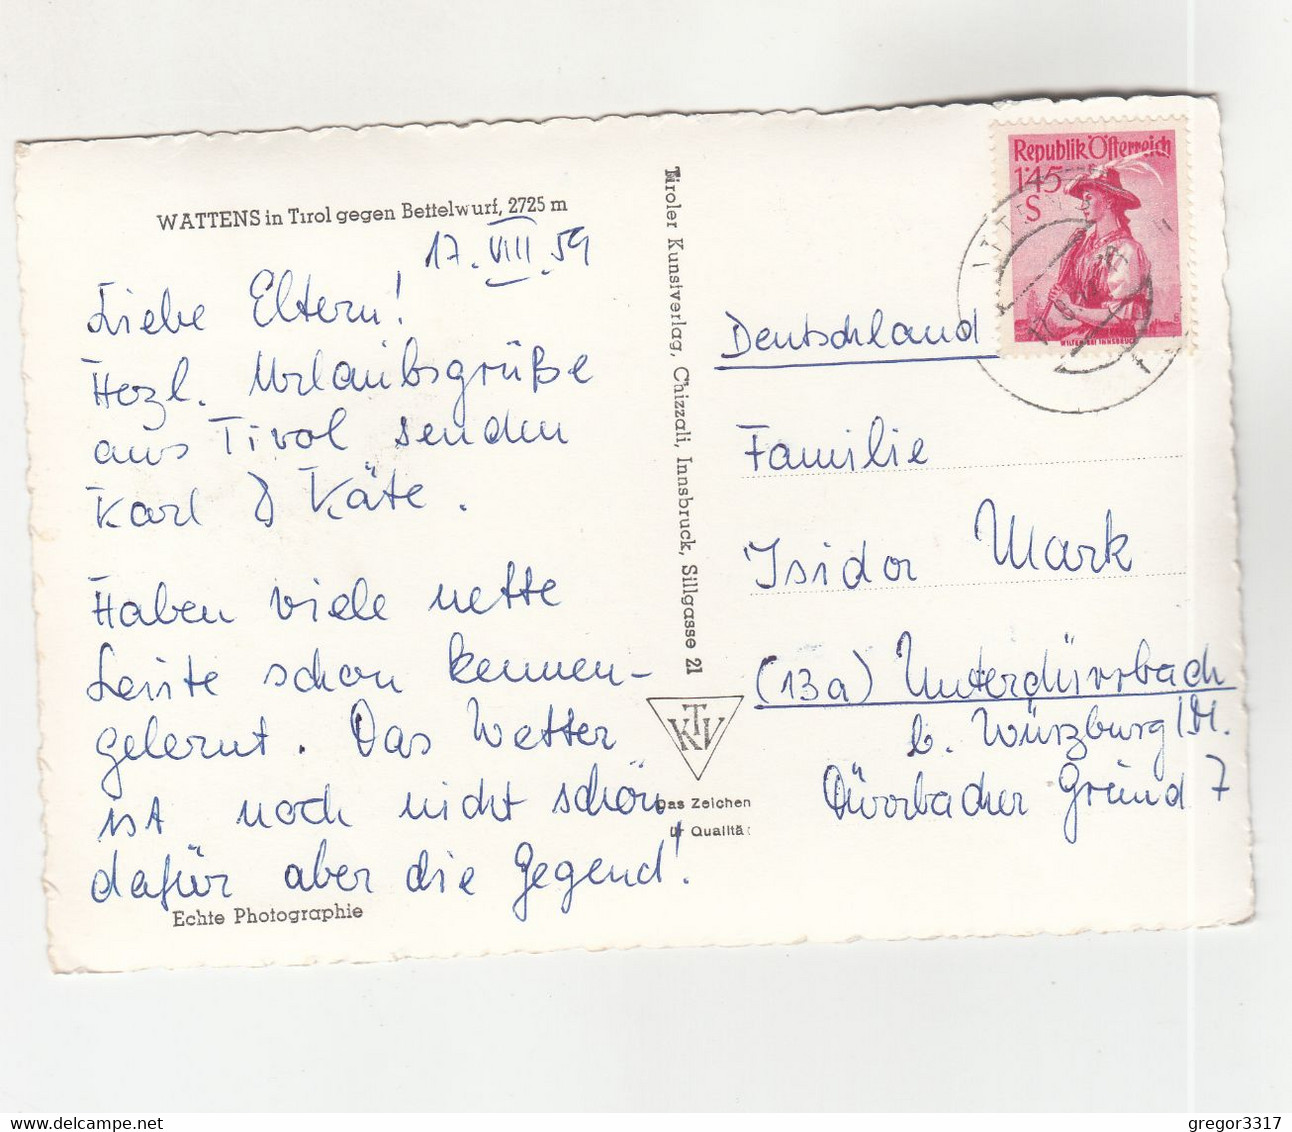 WATTENS in Tirol gegen Bettelwurf, 2725 m
17. VIII. 59
Liebe Eltern!
Herzl. Urlaubsgrüße
aus Tirol senden
Karl & Käte.
Haben viele nette
Leute schon kennen-
gelernt. Das Wetter
ist noch nicht schön
dafür aber die Gegend!
Echte Photographie
Tiroler Kunstverlag, Chizzali, Innsbruck, Sillgasse 21
KTV
Das Zeichen
für Qualität
Republik Österreich
1'45
S
WILTEN BEI INNSBRUCK
Deutschland
Familie
Isidor Mark
(13a) Unterdürrbach
b. Würzburg/M.
Dürrbacher Grund 7
gregor3317